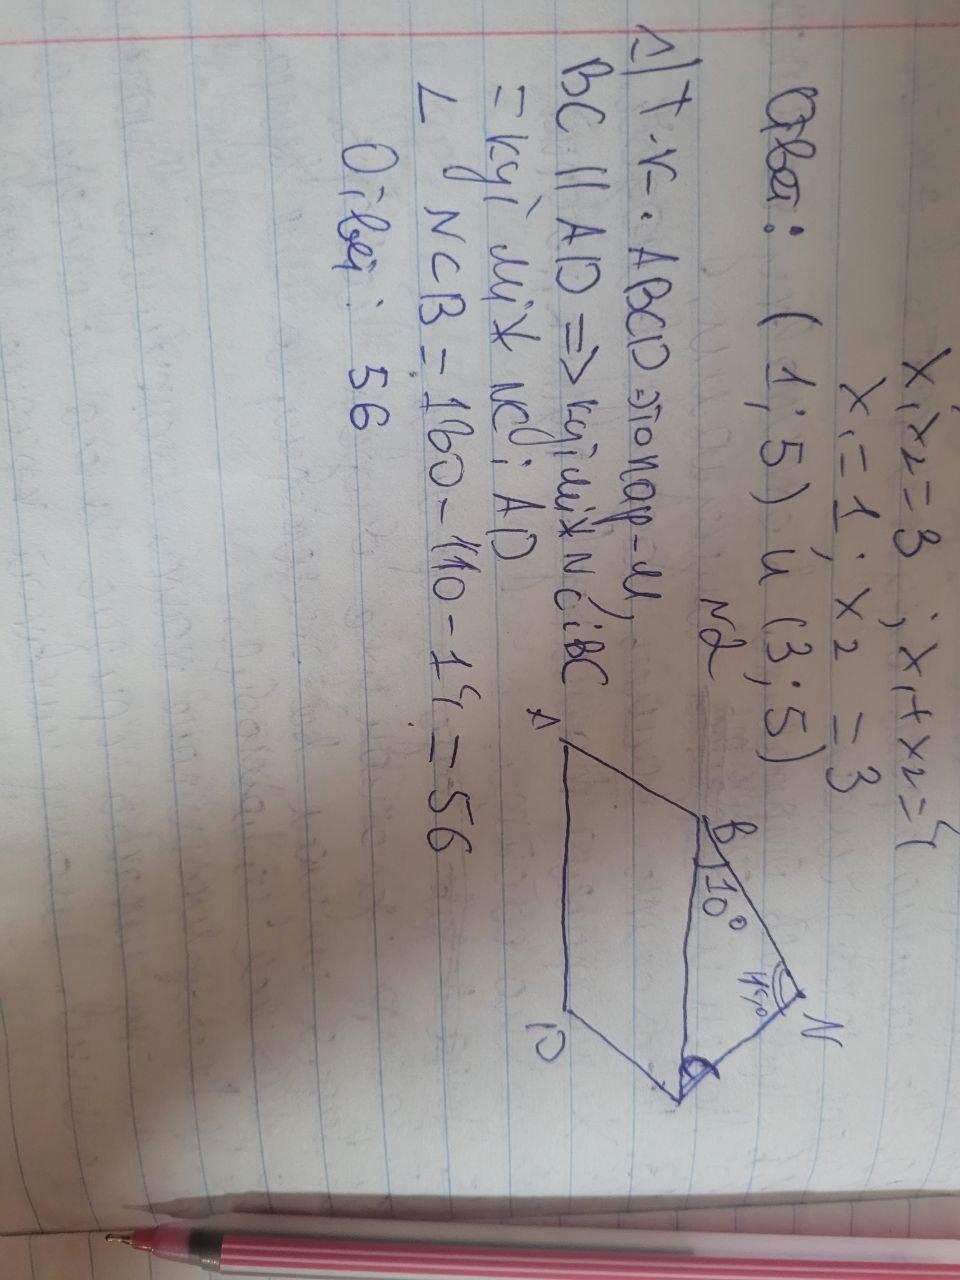 x₁x₂ = 3 ; x₁ + x₂ = 4
x₁ = 1 ; x₂ = 3
Ответ: (1; 5) и (3; 5)
N2
1) Т.к. ABCD - пар-м,
BC || AD => кут між NC і BC
= куі між NC і AD
∠ NCB = 180 - 110 - 14 = 56
Ответ: 56
A
B
110°
14°
N
D